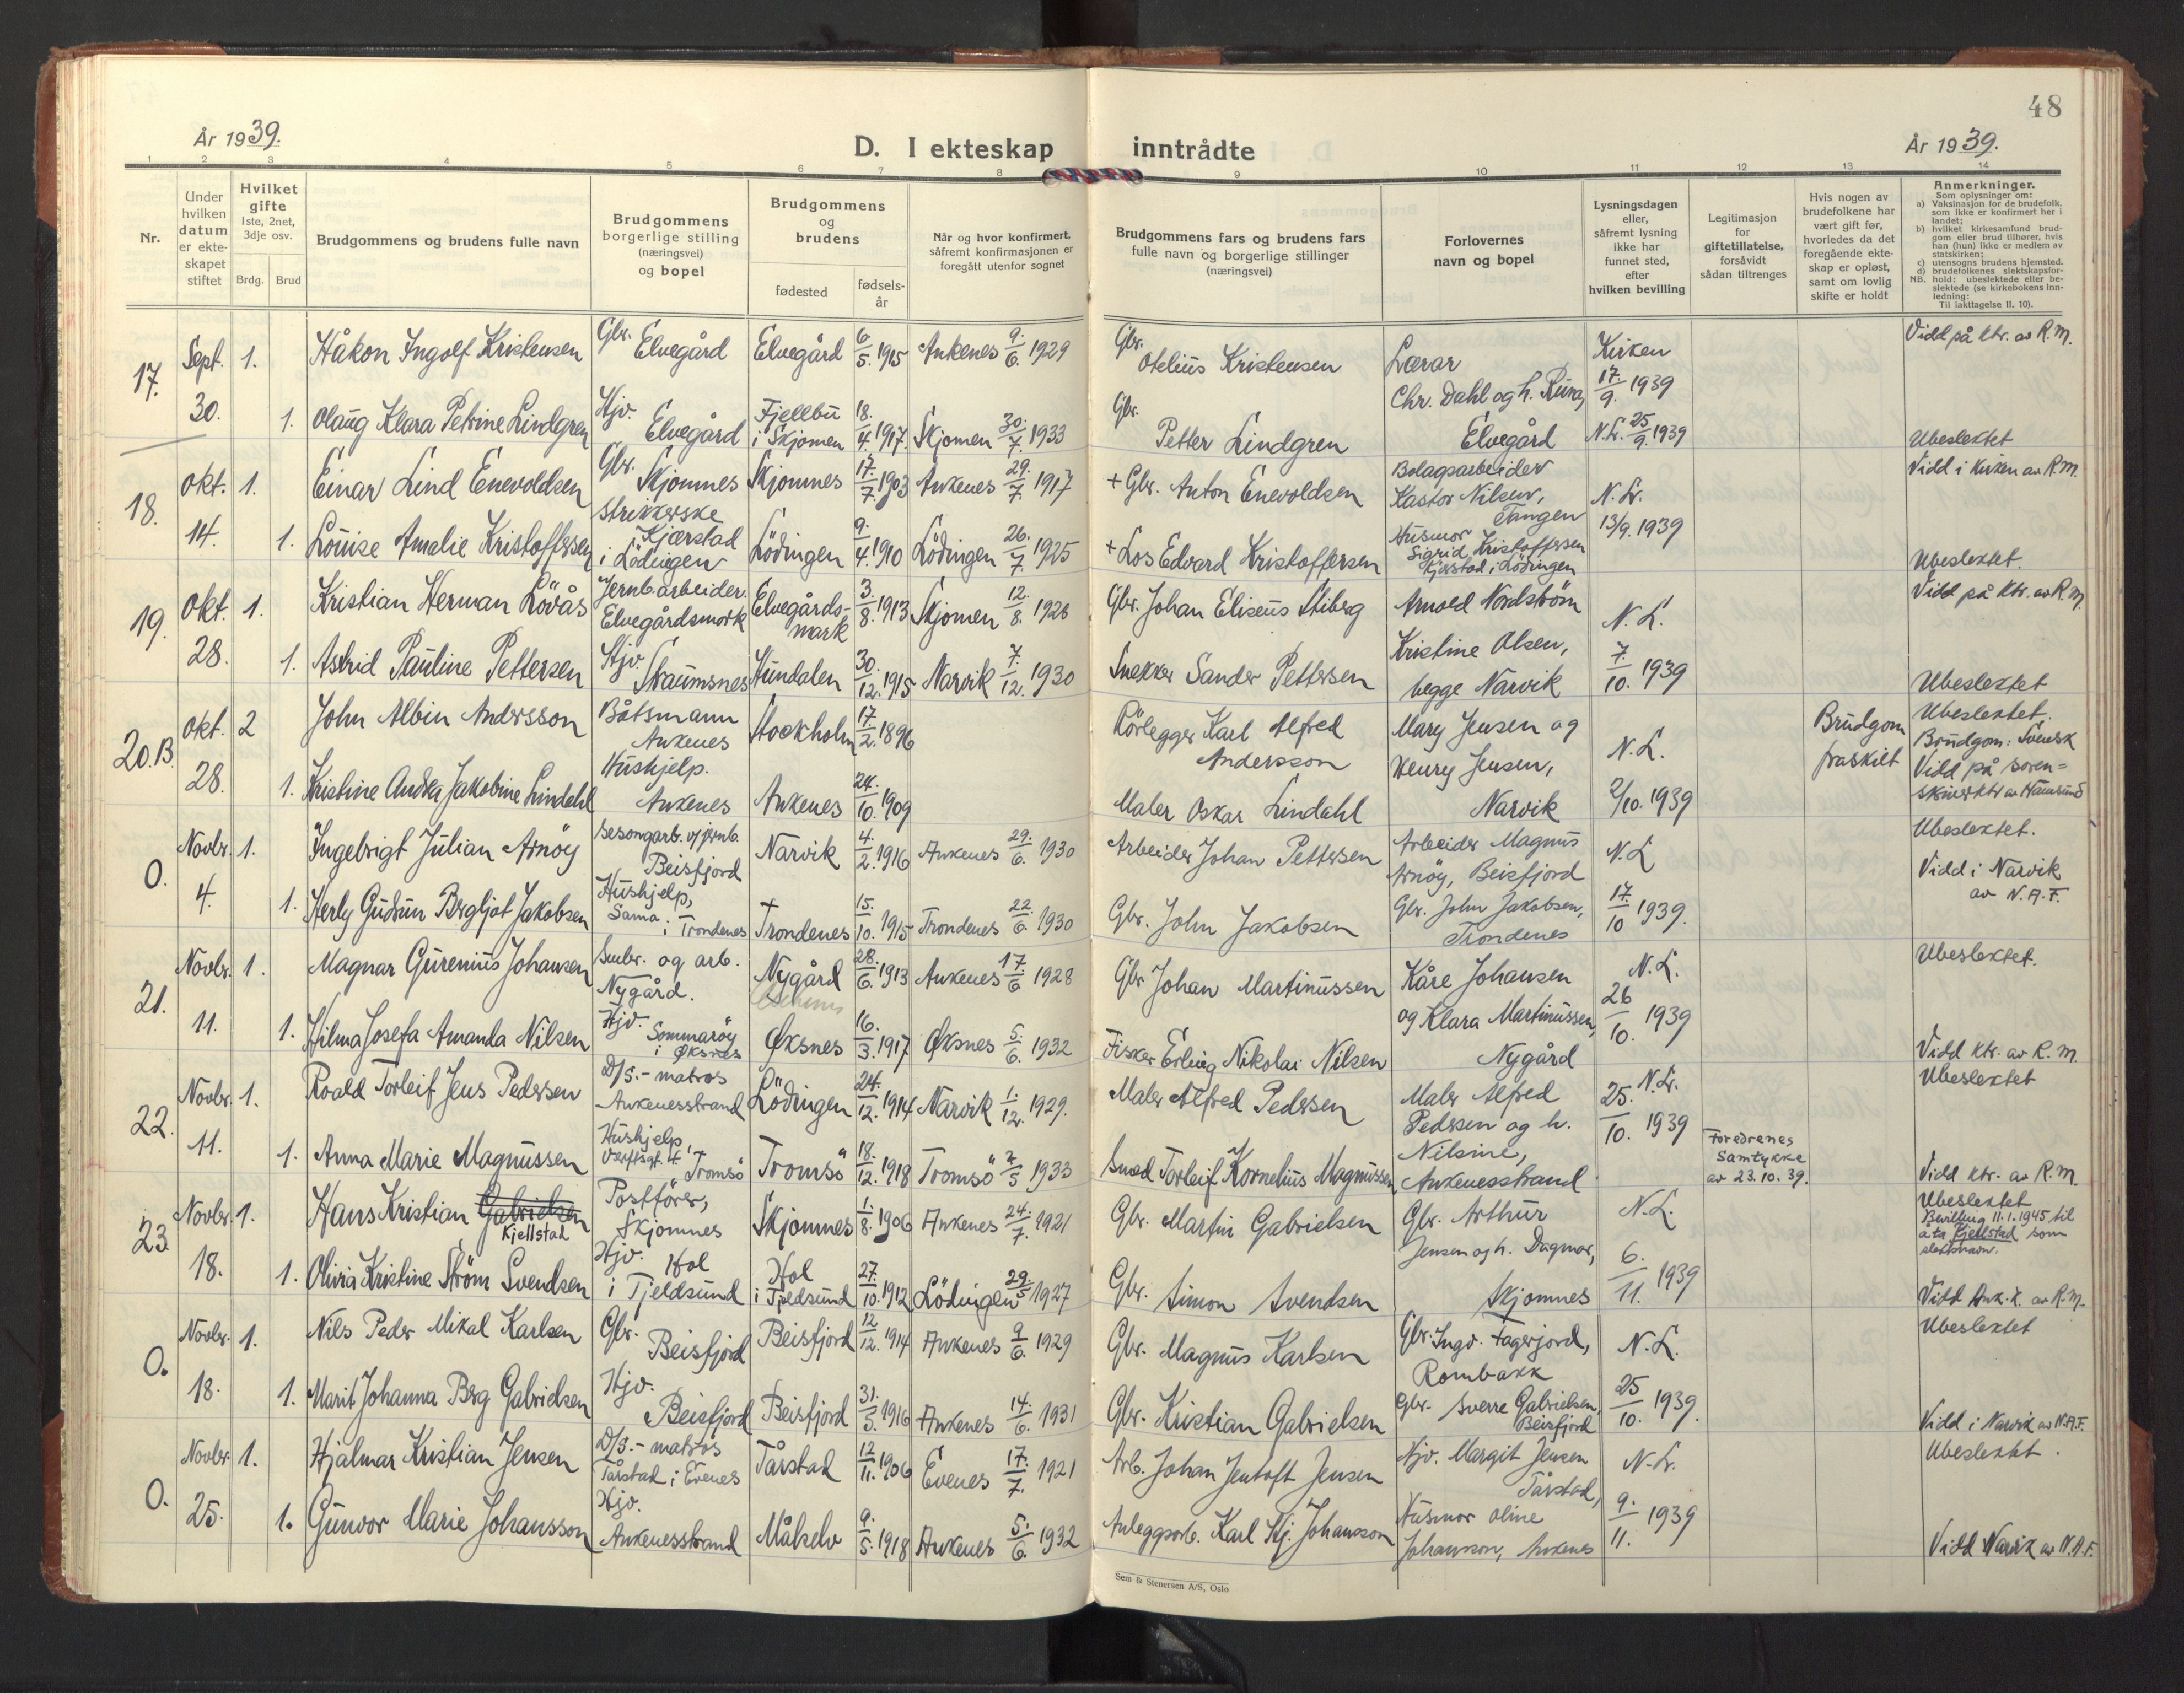 48
År 1939.
D. I ekteskap inntrådte
År 1939.
1 2 3 4 5 6 7 8 9 10 11 12 13 14
Nr.
Under
hvilken
datum
er ekte-
skapet
stiftet
Hvilket
gifte
1ste, 2net,
3dje osv.
Brdg. Brud
Brudgommens og brudens fulle navn
Brudgommens
borgerlige stilling
(næringsvei)
og bopel
Brudgommens
og
brudens
fødested
fødsels-
år
Når og hvor konfirmert,
såfremt konfirmasjonen er
foregått utenfor sognet
Brudgommens fars og brudens fars
fulle navn og borgerlige stillinger
(næringsvei)
Forlovernes
navn og bopel
Lysningsdagen
eller,
såfremt lysning
ikke har
funnet sted,
efter
hvilken bevilling
Legitimasjon
for
giftetillatelse,
forsåvidt
sådan tiltrenges
Hvis nogen av
brudefolkene har
vært gift før,
hvorledes da det
foregående ekte-
skap er opløst,
samt om lovlig
skifte er holdt
Anmerkninger.
Som oplysninger om:
a) Vaksinasjon for de brudefolk,
som ikke er konfirmert her i
landet;
b) hvilket kirkesamfund brud-
gom eller brud tilhører, hvis
han (hun) ikke er medlem av
statskirken;
c) utensogns brudens hjemsted.
d) brudefolkenes slektskapsfor-
NB. hold: ubeslektede eller be-
slektede (se kirkebokens inn-
ledning:
Til iakttagelse II. 10).
17. Sept. 30. 1. Håkon Ingolf Kristensen Gbr. Elvegård Elvegård 6/5. 1915 Ankenes 9./6. 1929 Gbr. Otelius Kristensen Lærar Kirken 17./9. 1939 Vidd på ktr. av R.M.
1. Olaug Klara Petrine Lindgren Hjv. Elvegård Fjellbu i Skjomen 18./4. 1917. Skjomen 30./7. 1933 Gbr. Petter Lindgren Chr. Dahl og h. Runa, Elvegård N.L. 25/9. 1939 Ubeslektet
18. Okt. 14. 1. Einar Lind Enevoldsen Gbr. Skjomnes Skjomnes 17./7. 1903 Ankenes 29./7. 1917 + Gbr. Anton Enevoldsen Bolagsarbeider Kastor Nilsen, Tangen N.L. 13/9. 1939 Vidd i kirken av R.M.
1. Louise Amalie Kristoffersen Strikkerske Kjærstad i Lödingen Lödingen 9./4. 1910 Lödingen 26./7. 1925 + Los Edvard Kristoffersen Husmor Sigrid Kristoffersen Kjerstad i Lödingen Ubeslektet.
19. Okt. 28. 1. Kristian Herman Lövås Jernb.arbeider. Elvegårdsmark Elvegårds-mark 3./8. 1913 Skjomen 12./8. 1928 Gbr. Johan Eliseus Stiberg Arnold Nordström N.L. 7./10. 1939 Vidd på ktr. av R.M.
1. Astrid Pauline Pettersen Hjv. Straumsnes Hundalen 30./12. 1915 Narvik 7./12. 1930 Snekker Sander Pettersen Kristine Olsen, begge Narvik Ubeslektet
20.B. Okt. 28. 2 John Albin Andersson Båtsmann Ankenes Stockholm 17./2. 1896 Rörlegger Karl Alfred Andersson Mary Jensen og Henry Jensen, Narvik N.L. 2/10. 1939 Brudgom fraskilt Ubeslektet. Brudgom: Svensk
1. Kristine Andrea Jakobine Lindahl Hushjelp. Ankenes Ankenes 24./10. 1909 Maler Oskar Lindahl Vidd på soren=skriverktr av Hamsund
0. Novbr. 4. 1. Ingebrigt Julian Arnöy Sesongarb. v/ jernb. Beisfjord Narvik 4./2. 1916 Ankenes 29./6. 1930 Arbeider Johan Pettersen Arbeider Magnus Arnöy, Beisfjord N.L. 17./10 1939. Ubeslektet.
1. Herly Gudrun Bergljot Jakobsen Hushjelp, Sama i Trondenes Trondenes 15./10. 1915 Trondenes 22./6. 1930 Gbr. John Jakobsen Gbr. John Jakobsen, Trondenes Vidd i Narvik av N.A.F.
21. Novbr. 11. 1. Magnar Gurenius Johansen Smbr. og arb. Nygård. Nygård 28./6. 1913 Ankenes 17./6 1928 Gbr Johan Martinussen Kåre Johansen og Klara Martinussen, Nygård N.L. 26/10. 1939 Ubeslektet.
1. Hilma Josefa Amanda Nilsen Hjv. Sommaröy i Øksnes Øksnes 16./3. 1917 Øksnes 5./6. 1932 Fisker Erling Nikolai Nilsen Vidd ktr. av R.M.
22. Novbr. 11. 1. Roald Torleif Jens Pedersen D/S.-matros Ankenesstrand Lödingen 24./12. 1914 Narvik 1./12. 1929. Maler Alfred Pedersen Maler Alfred Pedersen og h. Nilsine, Ankenesstrand N.L. 25./10. 1939 Ubeslektet
1. Anna Marie Magnussen Hushjelp, Tromsö Tromsö 18./12. 1918 Tromsö 7/5 1933 Smed Torleif Kornelius Magnussen Foredrenes Samtykke av 23.10.39. Vidd ktr. av R.M.
23. Novbr. 18. 1. Hans Kristian Gabrielsen Kjellstad Postförer, Skjomnes Skjomnes 1./8. 1906 Ankenes 24./7. 1921 Gbr. Martin Gabrielsen Gbr. Arthur Jensen og h. Dagmar, Skjomnes N.L. 6./11. 1939 Ubeslektet Bevilling 11.1.1945 til å ta Kjellstad som slektsnavn.
1. Olivia Kristine Ström Svendsen Hjv. Hol i Tjeldsund Hol i Tjeldsund 27./10. 1912 Lödingen 29./5 1927 Gbr. Simon Svendsen Vidd Ank. k. av R.M.
0. Novbr. 18. 1. Nils Peder Mikal Karlsen Gbr. Beisfjord Beisfjord 12/12. 1914 Ankenes 9/6. 1929 Gbr. Magnus Karlsen Gbr. Ingv. Fagerjord, Rombakk N.L. 25/10. 1939. Ubeslektet
1. Marit Johanna Berg Gabrielsen Hjv. Beisfjord Beisfjord 31./5. 1916 Ankenes 14./6. 1931 Gbr. Kristian Gabrielsen Gbr. Sverre Gabrielsen, Beisfjord Vidd i Narvik av N.A.F.
0. Novbr. 25. 1. Hjalmar Kristian Jensen D/S.-matros Tårstad i Evenes Tårstad 12/11. 1906 Evenes 17./7. 1921 Arb. Johan Jentoft Jensen Hjv. Margit Jensen Tårstad, N.L. 9./11. 1939 Ubeslektet.
1. Gunvor Marie Johansson Hjv. Ankenesstrand Målselv 9./5. 1918 Ankenes 5./6. 1932 Anleggsarb. Karl Hj. Johansson Husmor Oline Johansson, Ankenes Vidd Narvik av N.A.F.
Sem & Stenersen A/S, Oslo